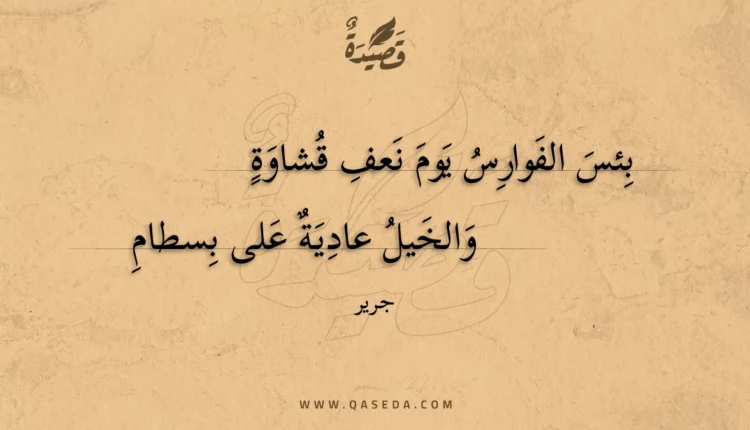 قَصِيدَةٌ
بِئسَ الفَوارِسُ يَومَ نَعفِ قُشاوَةٍ
وَالخَيلُ عادِيَةٌ عَلى بِسطامِ
جرير
WWW.QASEDA.COM